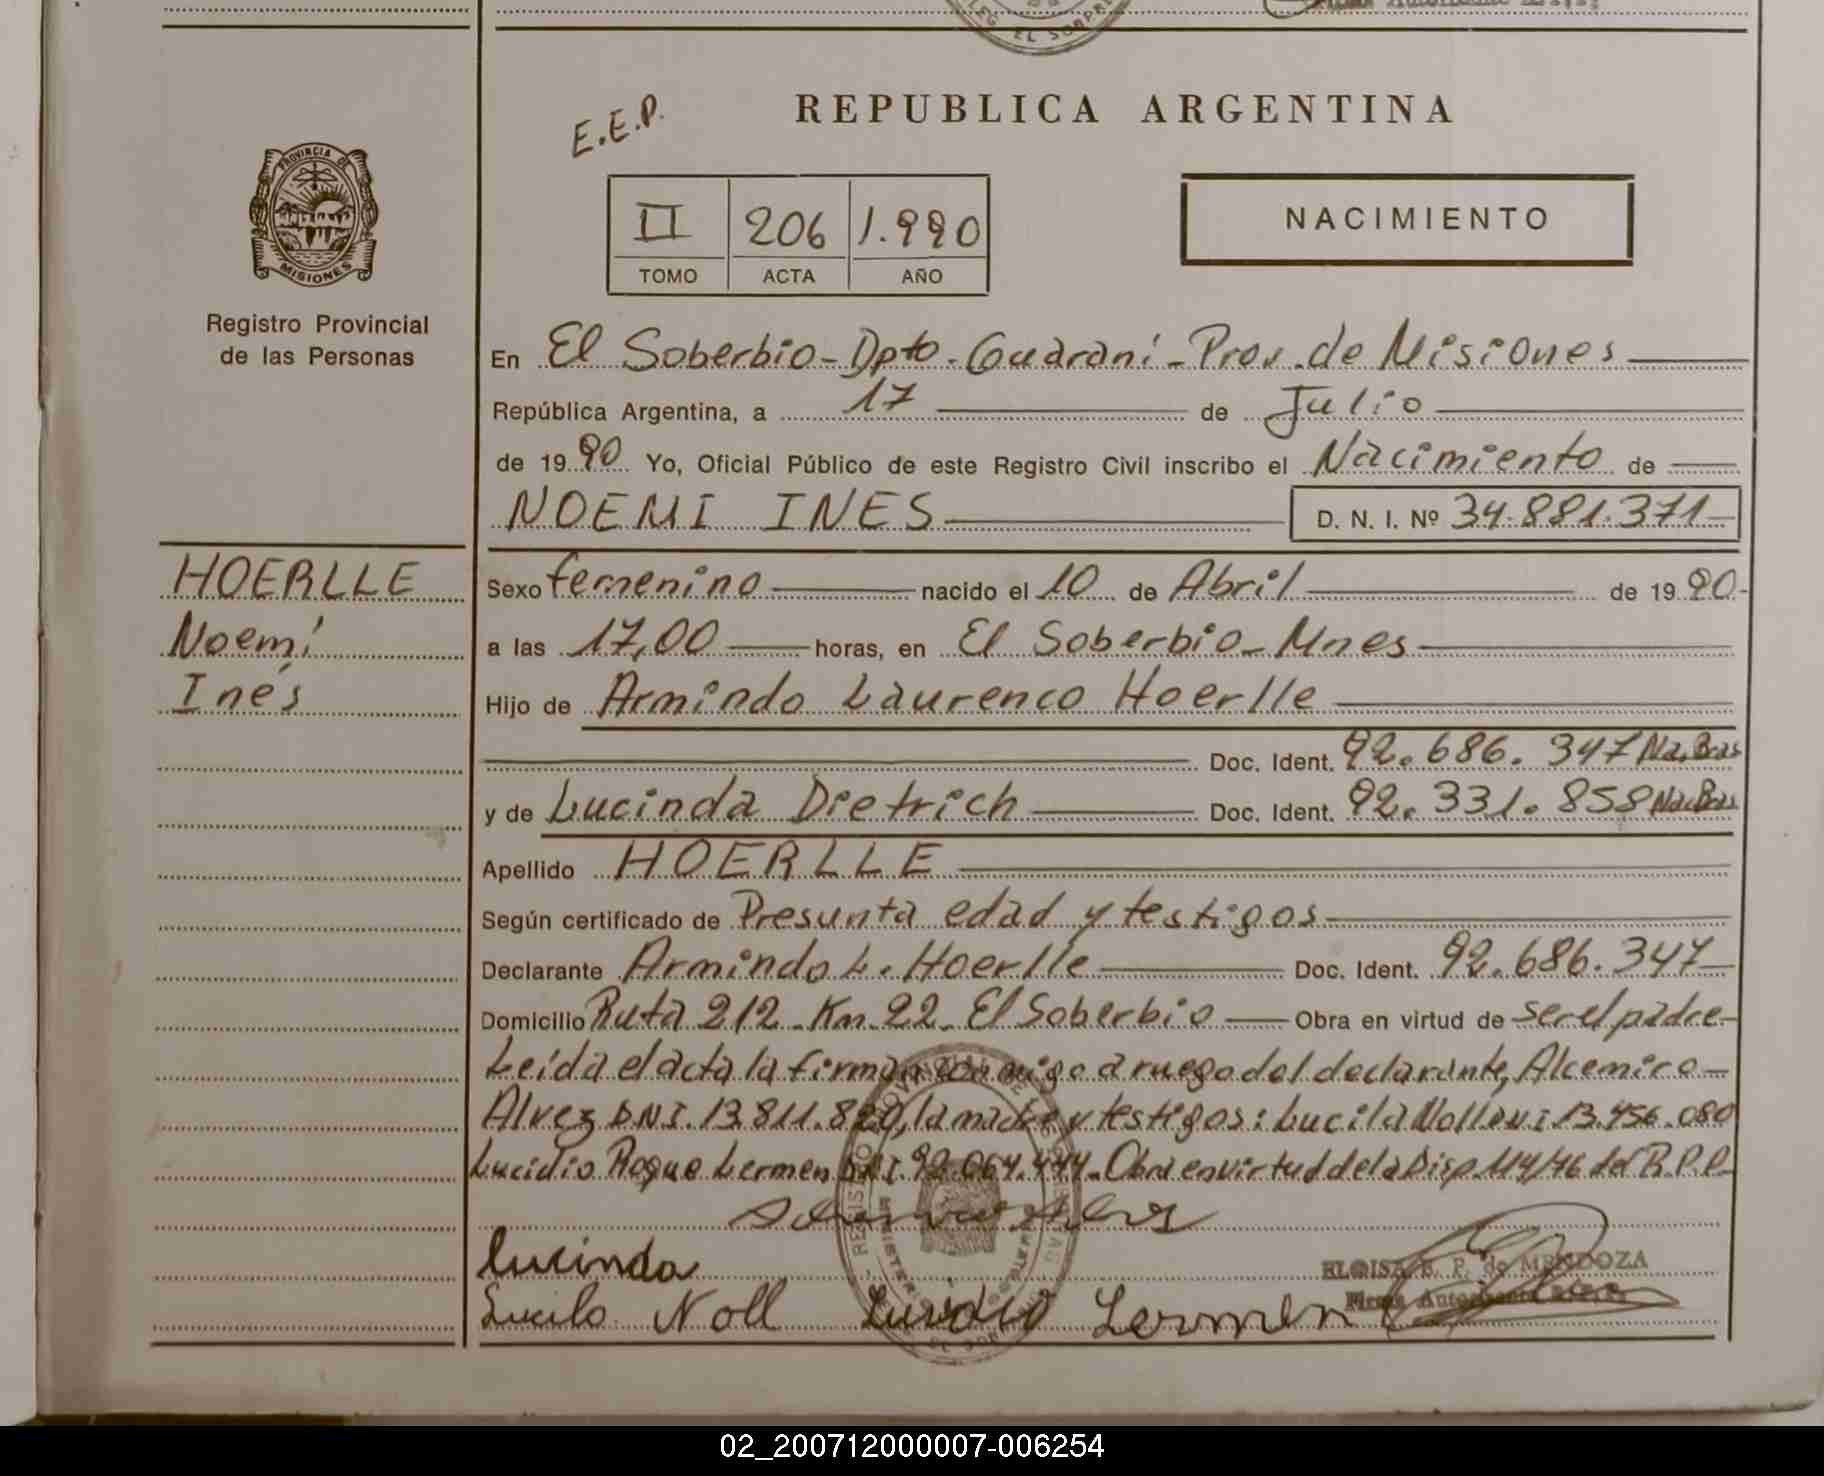 E.E.P.
REPUBLICA ARGENTINA
II 206 1.990
TOMO ACTA AÑO
NACIMIENTO
PROVINCIA DE
MISIONES
Registro Provincial
de las Personas
En El Soberbio - Dpto. Guaraní - Prov. de Misiones
República Argentina, a 17 de Julio
de 1990 Yo, Oficial Público de este Registro Civil inscribo el Nacimiento de
NOEMI INES D. N. I. Nº 34.881.371
HOERLLE
Noemí
Inés
Sexo femenino nacido el 10 de Abril de 1990
a las 17,00 horas, en El Soberbio - Mnes
Hijo de Armindo Laurenco Hoerlle
Doc. Ident. 92.686.347 Nac. Bras
y de Lucinda Dietrich Doc. Ident. 92.331.858 Nac. Bras
Apellido HOERLLE
Según certificado de Presunta edad y testigos
Declarante Armindo L. Hoerlle Doc. Ident. 92.686.347
Domicilio Ruta 212 - Km. 22 - El Soberbio Obra en virtud de ser el padre
Leída el acta la firman conmigo a ruego del declarante, Alcemiro
Alvez DNI. 13.811.820, la madre y testigos: Lucila Noll DNI 13.456.080
Lucidio Roque Lermen DNI. 92.064.474. Obra en virtud de la Disp. 114/76 del R.P.P.
Lucinda
Lucila Noll Lucidio Lermen
ELOISA E. P. de MENDOZA
Firma Autorizante
02_200712000007-006254